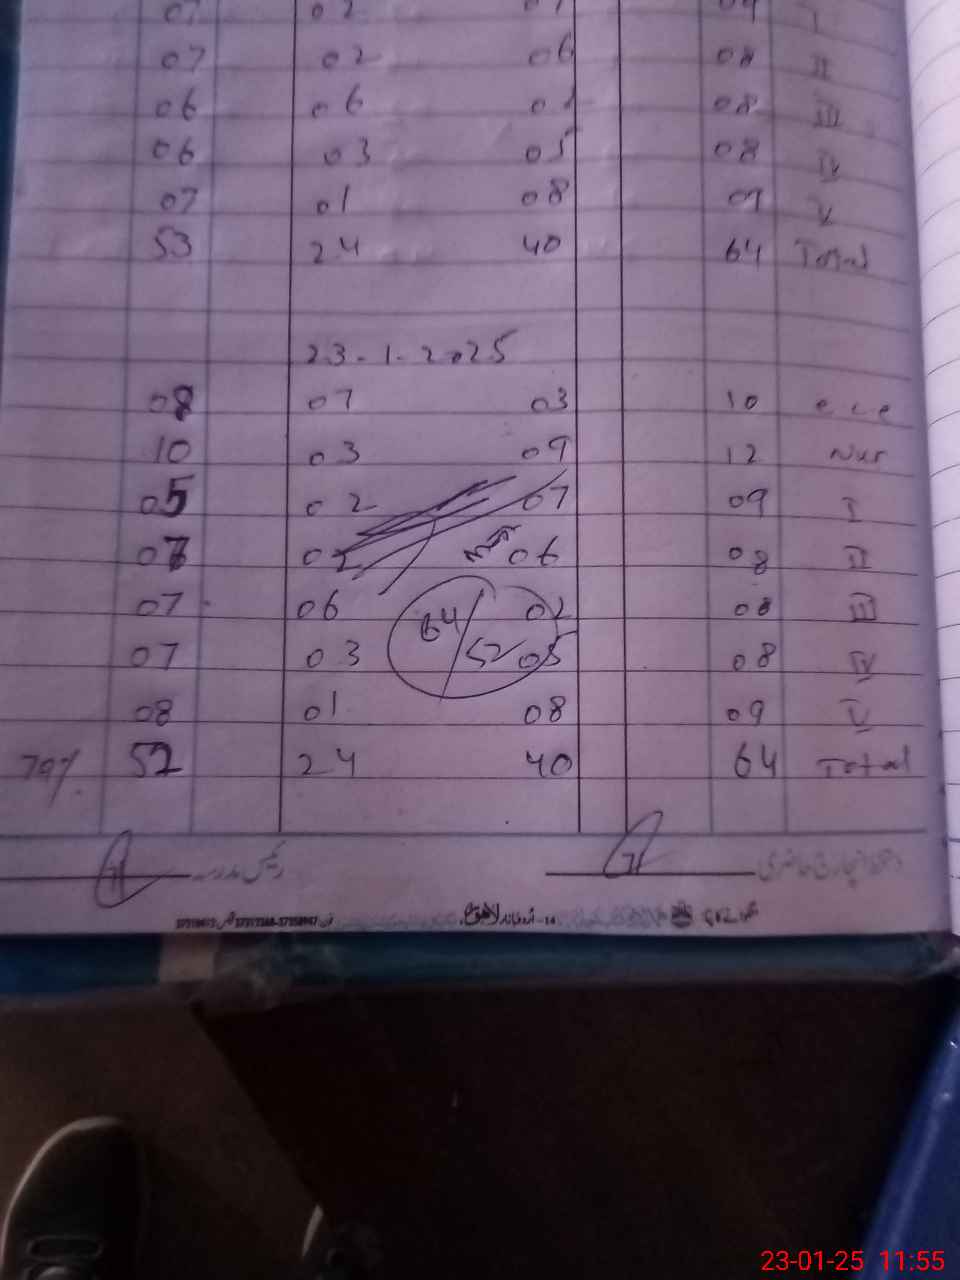 07 02 07 09 I
07 02 06 08 II
06 06 02 08 III
06 03 05 08 IV
07 01 08 09 V
53 24 40 64 Total
23-1-2025
08 07 03 10 ece
10 03 09 12 Nur
05 02 07 09 I
07 02 06 08 II
07 06 02 08 III
64/52
07 03 05 08 IV
08 01 08 09 V
79% 52 24 40 64 Total
رئیس مدرسہ
23-01-25 11:55